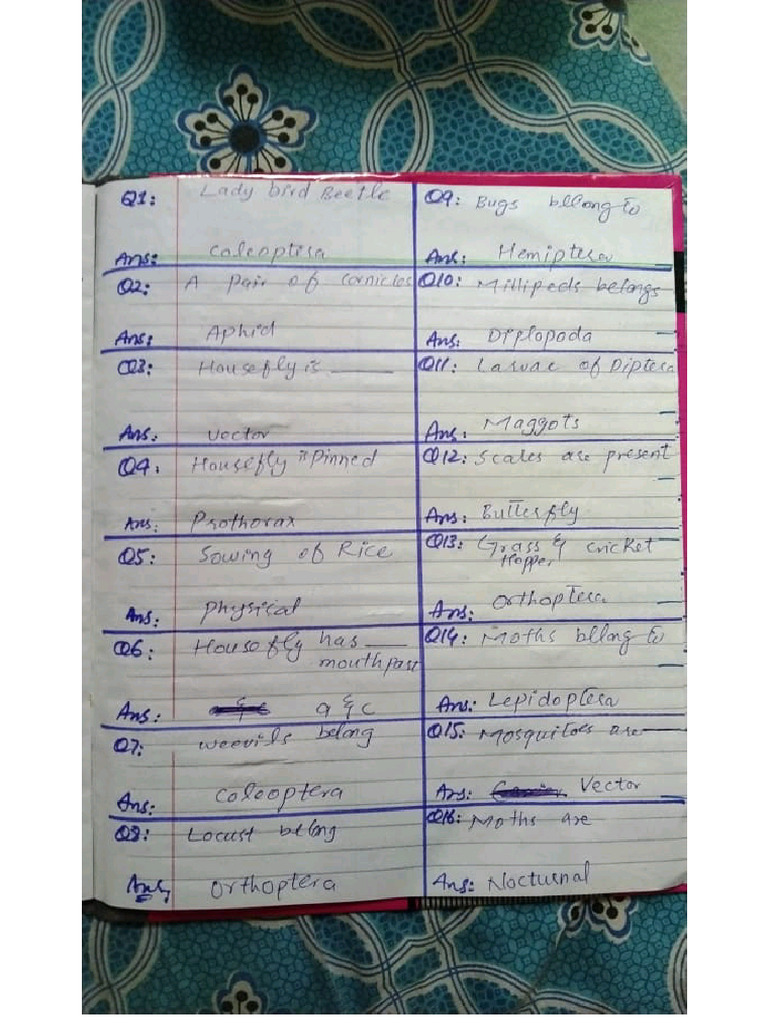 Q1: Lady bird Beetle
Ans: Coleoptera
Q2: A pair of cornicles
Ans: Aphid
Q3: Housefly is ______
Ans: Vector
Q4: Housefly is Pinned
Ans: Prothorax
Q5: Sowing of Rice
Ans: Physical
Q6: Housefly has ___
mouthpart
Ans: a & c
Q7: weevils belong
Ans: Coleoptera
Q8: Locust belong
Ans: Orthoptera
Q9: Bugs bllong to
Ans: Hemiptera
Q10: Millipeds belongs
Ans: Diplopoda
Q11: Larvae of Diptera
Ans: Maggots
Q12: Scales are present
Ans: Butterfly
Q13: Grass & cricket
Hopper
Ans: Orthoptera
Q14: Moths bllong to
Ans: Lepidoptera
Q15: Mosquitoes are ___
Ans: Vector
Q16: Moths are
Ans: Nocturnal